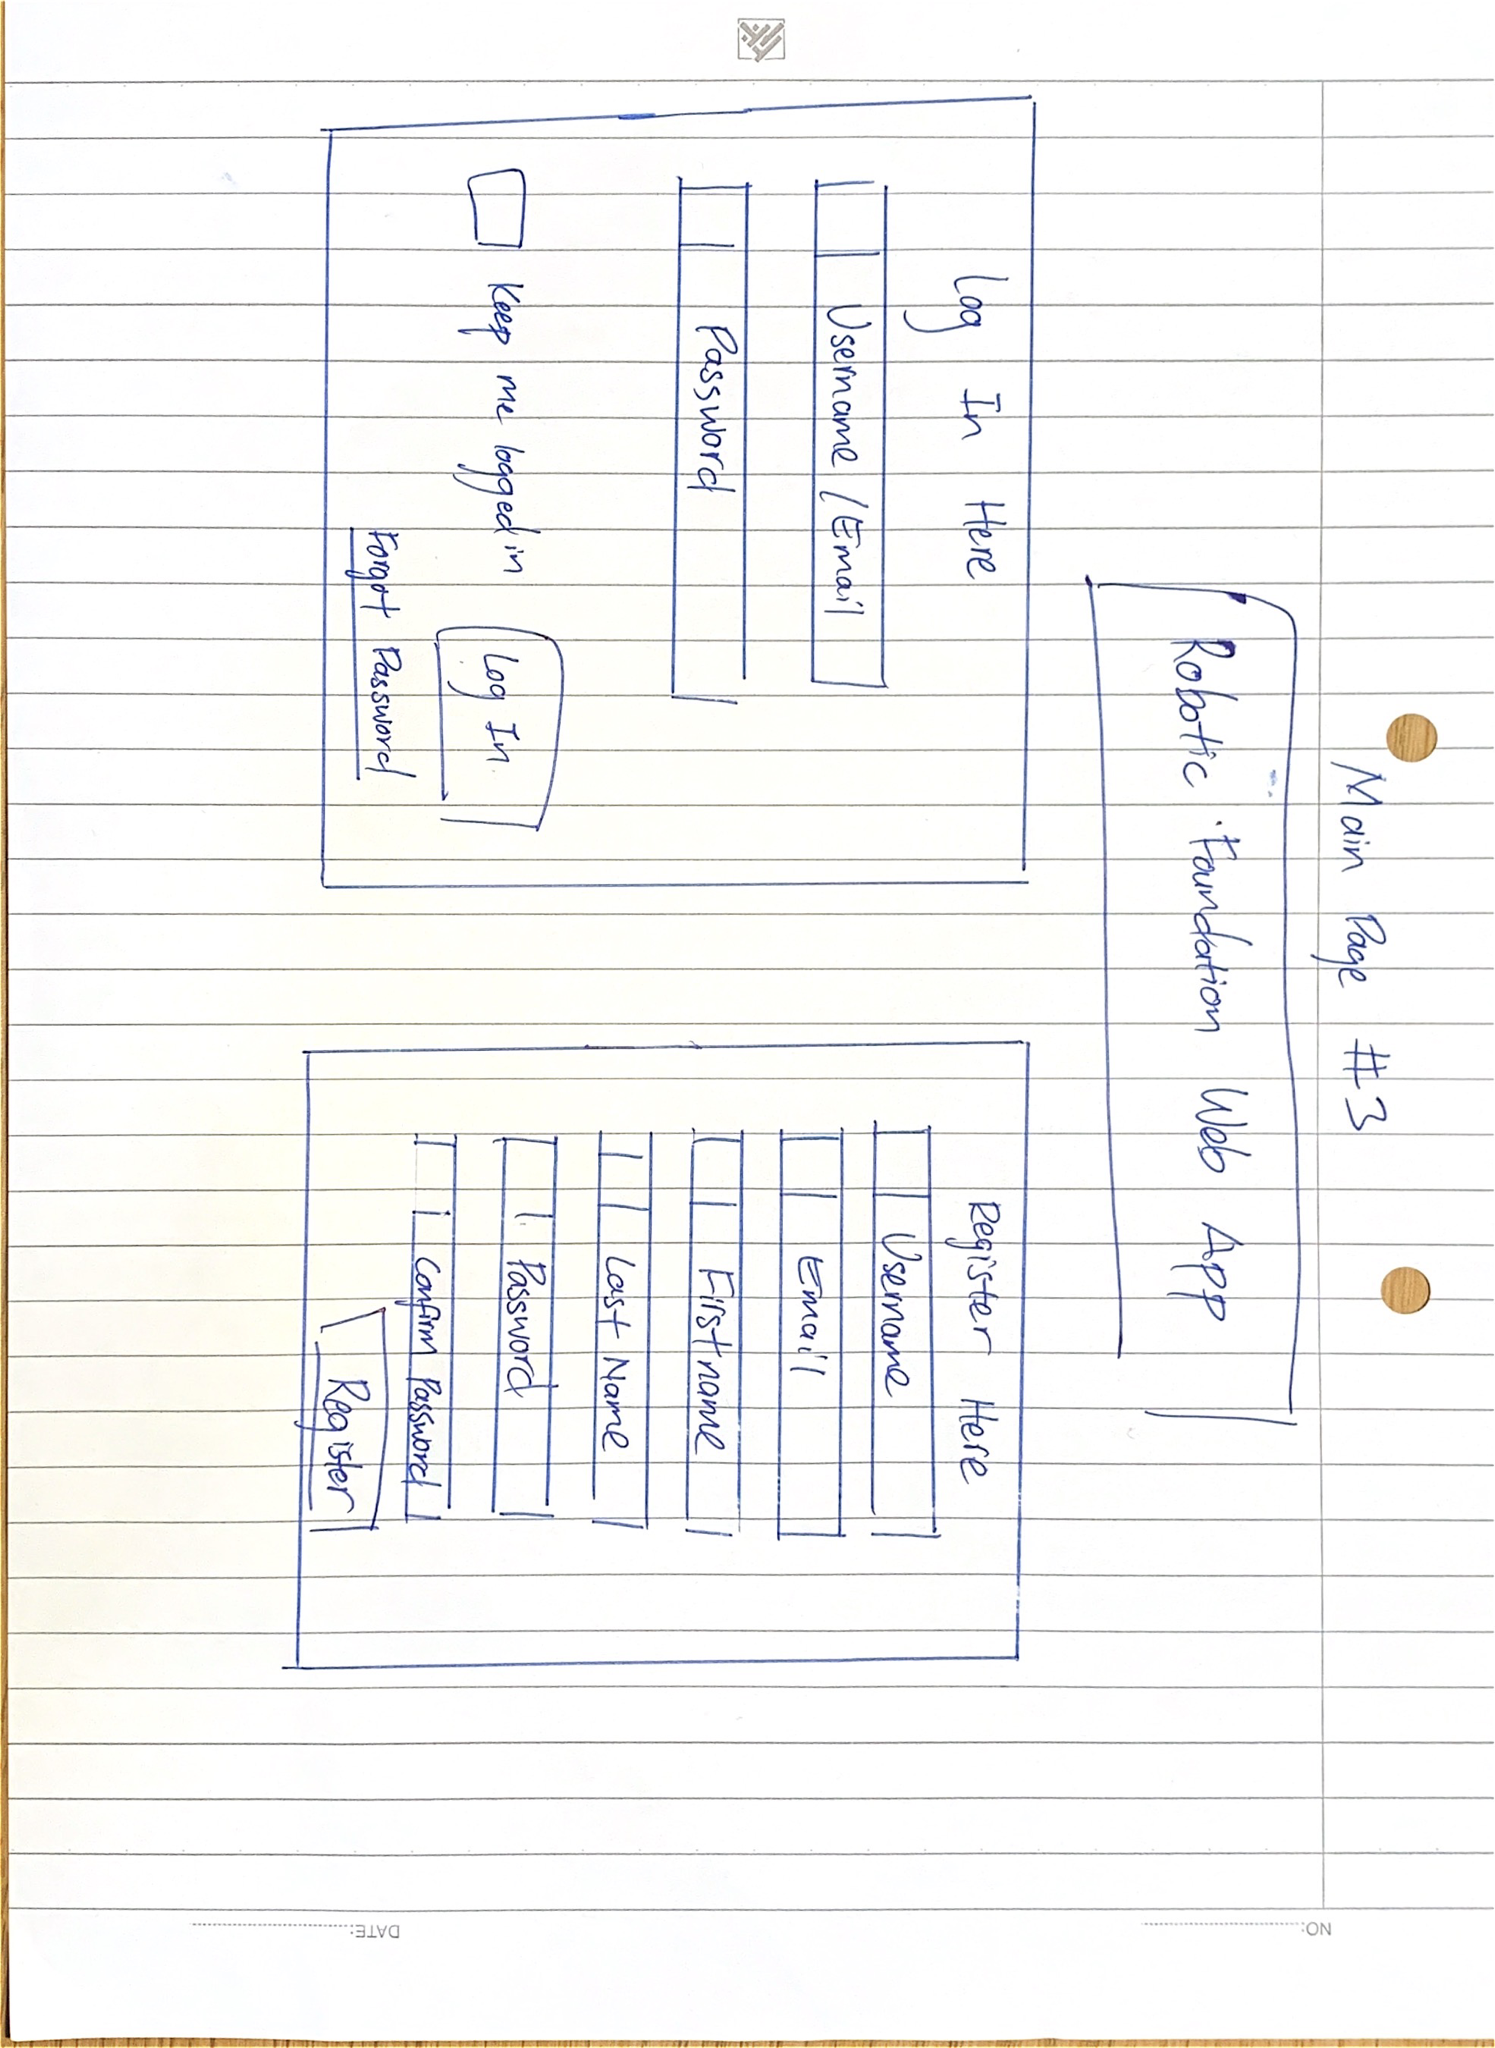 Main Page #3
Robotic Foundation Web App
Log In Here
Username / Email
Password
Keep me logged in
Log In
Forgot Password
Register Here
Username
Email
First name
Last Name
Password
Confirm Password
Register
NO:
DATE: